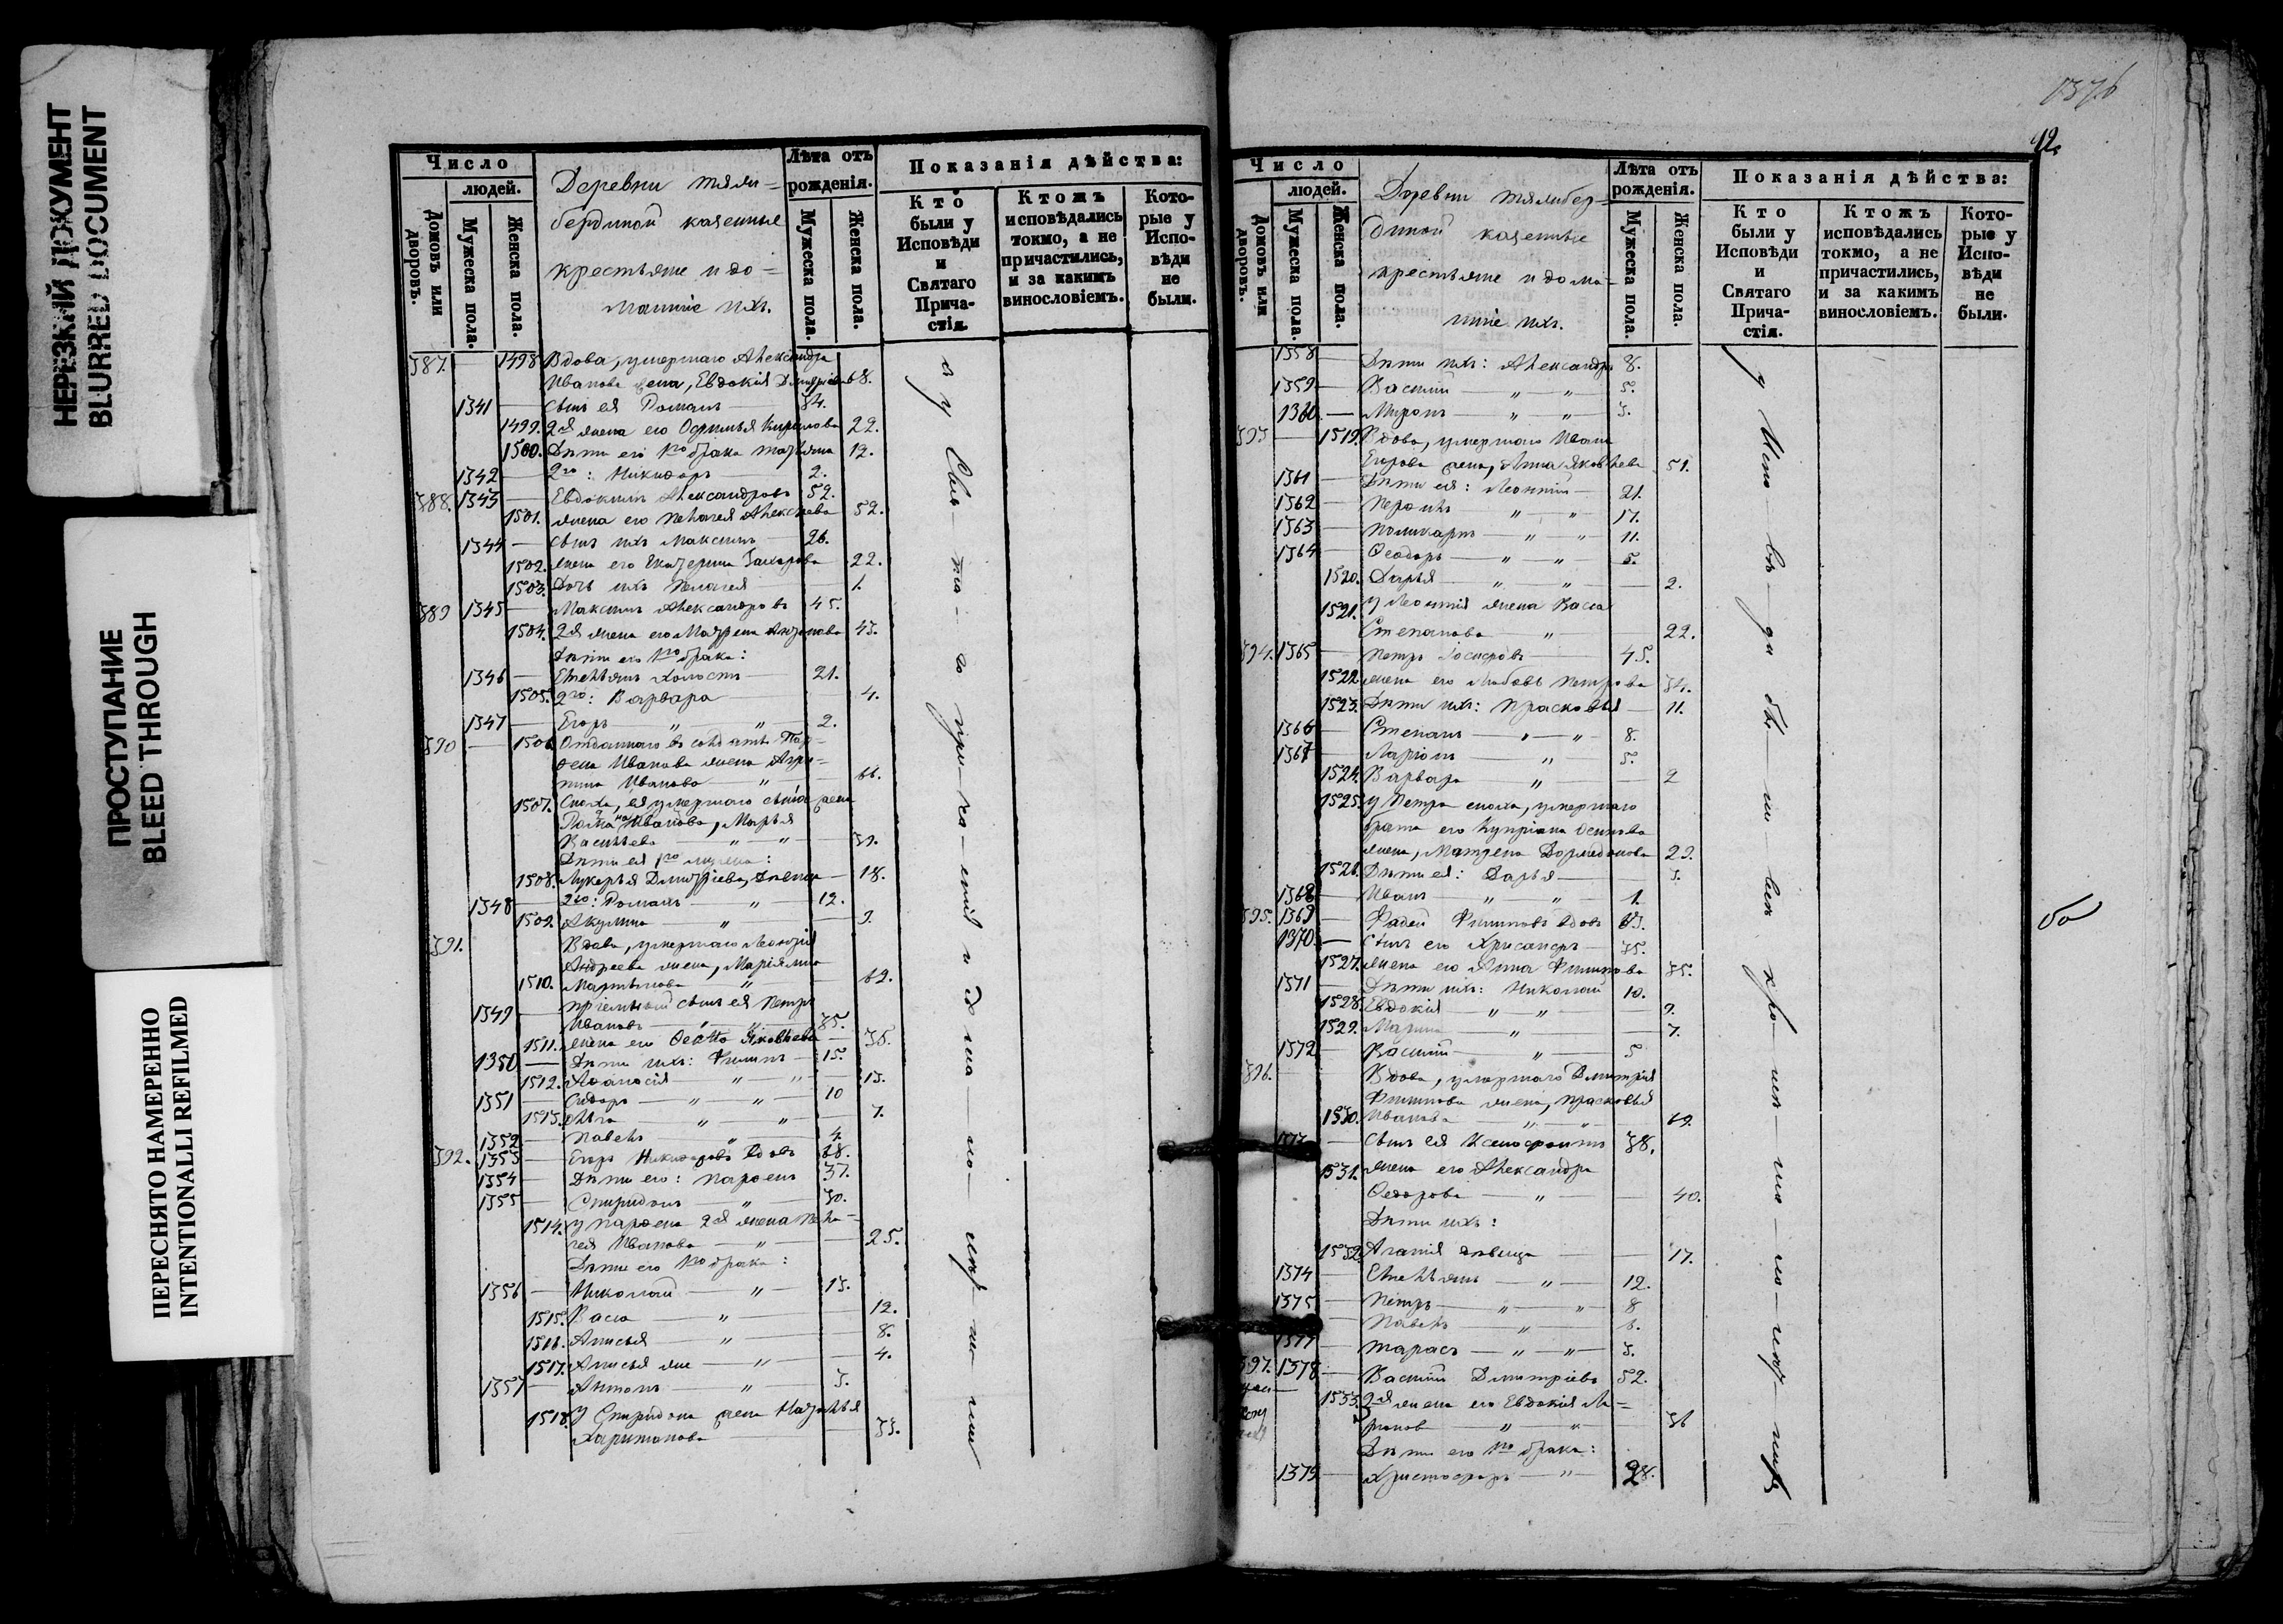 НЕРЕЗКИЙ ДОКУМЕНТ
BLURRED DOCUMENT
ПРОСТУПАНИЕ
BLEED THROUGH
ПЕРЕСНЯТО НАМЕРЕННО
INTENTIONALLI REFILMED
Число
людей.
Домовъ или дворовъ.
Мужеска пола.
Женска пола.
Деревни тяли=
бердиной казенные
крестьяне и до=
машніе ихъ.
Лѣта отъ рожденія.
Мужеска пола.
Женска пола.
Показанія дѣйства:
Кто были у Исповѣди и Святаго Прича-стія.
Ктожъ исповѣдались токмо, а не причастились, и за какимъ винословіемъ.
Кото-рые у Испо-вѣди не были.
387. — 1498 Вдова, умершаго Александра
Иванова жена, Евдокія Дмитріева 68.
1341 — Сынъ ея Романъ — 34.
1499. 2я жена его Кирилова 22.
1500. Дѣти его 1го брака 12.
1342 — 2го: Никифоръ — 2.
388. 1343 — Евдокимъ Александровъ 52.
1501. жена его Пелагея Алексѣева 52.
1344 — Сынъ ихъ Максимъ — 26.
1502. жена его Екатерина Захарова 22.
1503. Дочь ихъ Пелагея 1.
389 1345 — Максимъ Александровъ 45.
1504. 2я жена его Матрена Антонова 43.
Дѣти его 1го брака:
1346 — Емельянъ холостъ — 21.
1505. 2го: Варвара — 4.
1347 — Егоръ — „ „ — 2.
390 — 1506 Отданнаго въ солдаты Пар-
фена Иванова жена Агри=
пина Иванова — „ — 66.
1507. Сноха, ея умершаго сына жена
Романа Иванова, Марья
Васильева — „ — „ — 39.
Дѣти ея 1го мужа:
1508. Лукерья Дмитріева, дѣвица — 18.
1348 — 2го: Романъ — „ — 12.
1509. Акулина — „ — 9.
391. Вдова, умершаго
Андреева жена,
1510. Мартынова — „ — 62.
1349 — Пріемный сынъ ея Петръ
Ивановъ — „ — 35.
1511. жена его Яковлева — 36.
1350 — Дѣти ихъ: Филипъ — 15.
1512. Афанасія — „ — „ — 13.
1351 — Сидоръ — „ — „ — 10
1513. — „ — „ — 7.
1352 — Павелъ — „ — 4.
392. 1353 — Егоръ Никифоровъ вдовъ 68.
1354 — Дѣти его: Парфенъ 37.
1355 — Спиридонъ — „ — 30.
1514. У Парфена 2я жена Пела=
гея Иванова — „ — 25.
Дѣти его 1го брака:
1356 — Николай — „ — 13.
1515. Васса — „ — 12.
1516. Анисья — „ — 8.
1517. Анисья же — „ — 4.
1357 — Антонъ — „ — 3.
1518. У Спиридона жена Наталья
Харитонова — 33.
137б
42.
Число
людей.
Домовъ или дворовъ.
Мужеска пола
Женска пола.
Деревни тялибер=
диной казенные
крестьяне и дома=
шніе ихъ.
Лѣта отъ рожденія.
Мужеска пола.
Женска пола.
Показанія дѣйства:
Кто были у Исповѣди и Святаго Прича-стія.
Ктожъ исповѣдались токмо, а не причастились, и за какимъ винословіемъ.
Кото-рые у Испо-вѣди не были.
1358 — Дѣти ихъ: Александръ 8.
1359 — Василій — „ — „ 5.
1360 — Миронъ — „ — „ 3.
393 — 1519. Вдова, умершаго Ивана
Егорова жена, Анна Яковлева 51.
1361 — Дѣти ея: Леонтій — 21.
1362 — „ — „ — 17.
1363 — Поликарпъ — „ — „ 11.
1364 — Ѳеодоръ — „ — „ 5.
1520. Дарья — „ — „ — 2.
1521. У Леонтія жена Васса
Степанова „ — 22.
394. 1365 — Петръ Іосифовъ — 45.
1522. жена его Любовь Петрова 34.
1523. Дѣти ихъ: Прасковья — 11.
1366 — Степанъ — „ — „ 8.
1367 — Ларіонъ „ 5.
1524. Варвара „ 2
1525. У Петра сноха, умершаго
брата его Купріана Осипова
жена, Матрена Дормидонова 29.
1526. Дѣти ея: Дарья — 3.
1368 — Иванъ — „ „ — 1.
395. 1369 — Фадей Филиповъ вдовъ 63.
1370. — Сынъ его Хрисанфъ — 35.
1527. жена его Анна Филипова 35.
1371 — Дѣти ихъ: Николай 10.
1528. Евдокія — „ „ — 9.
1529. Марина — „ — 7.
1372 — Василій — „ — 5
396. Вдова, умершаго Дмитрія
Филипова жена, Прасковья
1530. Иванова — „ — 69.
— Сынъ ея Ксенофонтъ 38.
1531. жена его Александра
Ѳедорова — „ — 40.
Дѣти ихъ:
1532. Агафія дѣвица — 17.
1374 — Емельянъ — „ — 12.
1375 — Петръ — „ — „ 8
— Павелъ — „ — 6.
1377 — Тарасъ — „ — „ — 3.
397. 1378 — Василій Дмитріевъ 52.
1533. 2я жена его Евдокія Ла=
ріонов „ „ 36
Дѣти его 1го брака:
1379 — Христофоръ — „ — 28.